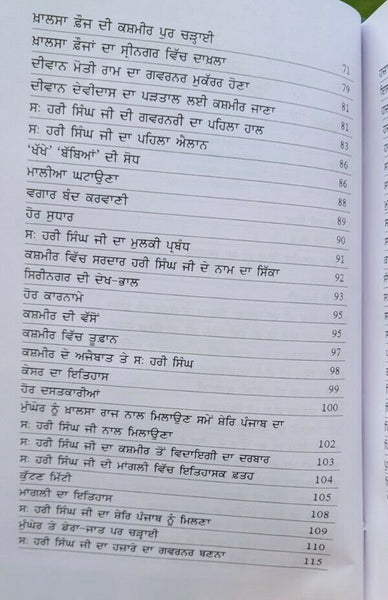 ਖ਼ਾਲਸਾ ਫ਼ੌਜ ਦੀ ਕਸ਼ਮੀਰ ਪੁਰ ਚੜ੍ਹਾਈ
ਖ਼ਾਲਸਾ ਫ਼ੌਜਾਂ ਦਾ ਸ੍ਰੀਨਗਰ ਵਿੱਚ ਦਾਖ਼ਲਾ 71
ਦੀਵਾਨ ਮੋਤੀ ਰਾਮ ਦਾ ਗਵਰਨਰ ਮੁਕੱਰਰ ਹੋਣਾ 79
ਦੀਵਾਨ ਦੇਵੀਦਾਸ ਦਾ ਪੜਤਾਲ ਲਈ ਕਸ਼ਮੀਰ ਜਾਣਾ 81
ਸ: ਹਰੀ ਸਿੰਘ ਜੀ ਦੀ ਗਵਰਨਰੀ ਦਾ ਪਹਿਲਾ ਹਾਲ 81
ਸ: ਹਰੀ ਸਿੰਘ ਜੀ ਦਾ ਪਹਿਲਾ ਐਲਾਨ 83
'ਖੱਖੇ' 'ਬੰਬਿਆਂ' ਦੀ ਸੋਧ 86
ਮਾਲੀਆ ਘਟਾਉਣਾ 86
ਵਗਾਰ ਬੰਦ ਕਰਵਾਣੀ 88
ਹੋਰ ਸੁਧਾਰ 89
ਸ: ਹਰੀ ਸਿੰਘ ਜੀ ਦਾ ਮੁਲਕੀ ਪ੍ਰਬੰਧ 90
ਕਸ਼ਮੀਰ ਵਿੱਚ ਸਰਦਾਰ ਹਰੀ ਸਿੰਘ ਜੀ ਦੇ ਨਾਮ ਦਾ ਸਿੱਕਾ 91
ਸਿਰੀਨਗਰ ਦੀ ਦੇਖ-ਭਾਲ 92
ਹੋਰ ਕਾਰਨਾਮੇ 93
ਕਸ਼ਮੀਰ ਦੀ ਵੱਸੋਂ 95
ਕਸ਼ਮੀਰ ਵਿੱਚ ਤੂਫ਼ਾਨ 95
ਕਸ਼ਮੀਰ ਦੇ ਅਜੈਬਾਤ ਤੇ ਸ: ਹਰੀ ਸਿੰਘ 97
ਕੇਸਰ ਦਾ ਇਤਿਹਾਸ 98
ਹੋਰ ਦਸਤਕਾਰੀਆਂ 99
ਮੁੰਘੇਰ ਨੂੰ ਖ਼ਾਲਸਾ ਰਾਜ ਨਾਲ ਮਿਲਾਉਣ ਸਮੇਂ ਸ਼ੇਰਿ ਪੰਜਾਬ ਦਾ 100
ਸ: ਹਰੀ ਸਿੰਘ ਜੀ ਨਾਲ ਮਿਲਾਉਣਾ
ਸ: ਹਰੀ ਸਿੰਘ ਜੀ ਦਾ ਕਸ਼ਮੀਰ ਤੋਂ ਵਿਦਾਇਗੀ ਦਾ ਦਰਬਾਰ 102
ਸ: ਹਰੀ ਸਿੰਘ ਜੀ ਦੀ ਮਾਂਗਲੀ ਵਿੱਚ ਇਤਿਹਾਸਕ ਫ਼ਤਹ 103
ਕੁੱਟਣ ਮਿੱਟੀ 104
ਮਾਂਗਲੀ ਦਾ ਇਤਿਹਾਸ 105
ਸ: ਹਰੀ ਸਿੰਘ ਜੀ ਦਾ ਸ਼ੇਰਿ ਪੰਜਾਬ ਨੂੰ ਮਿਲਣਾ 108
ਮੁੰਘੇਰ ਤੇ ਡੇਰਾ-ਜਾਤ ਪਰ ਚੜ੍ਹਾਈ 109
ਸ: ਹਰੀ ਸਿੰਘ ਜੀ ਦਾ ਹਜ਼ਾਰੇ ਦਾ ਗਵਰਨਰ ਬਣਨਾ 110
115